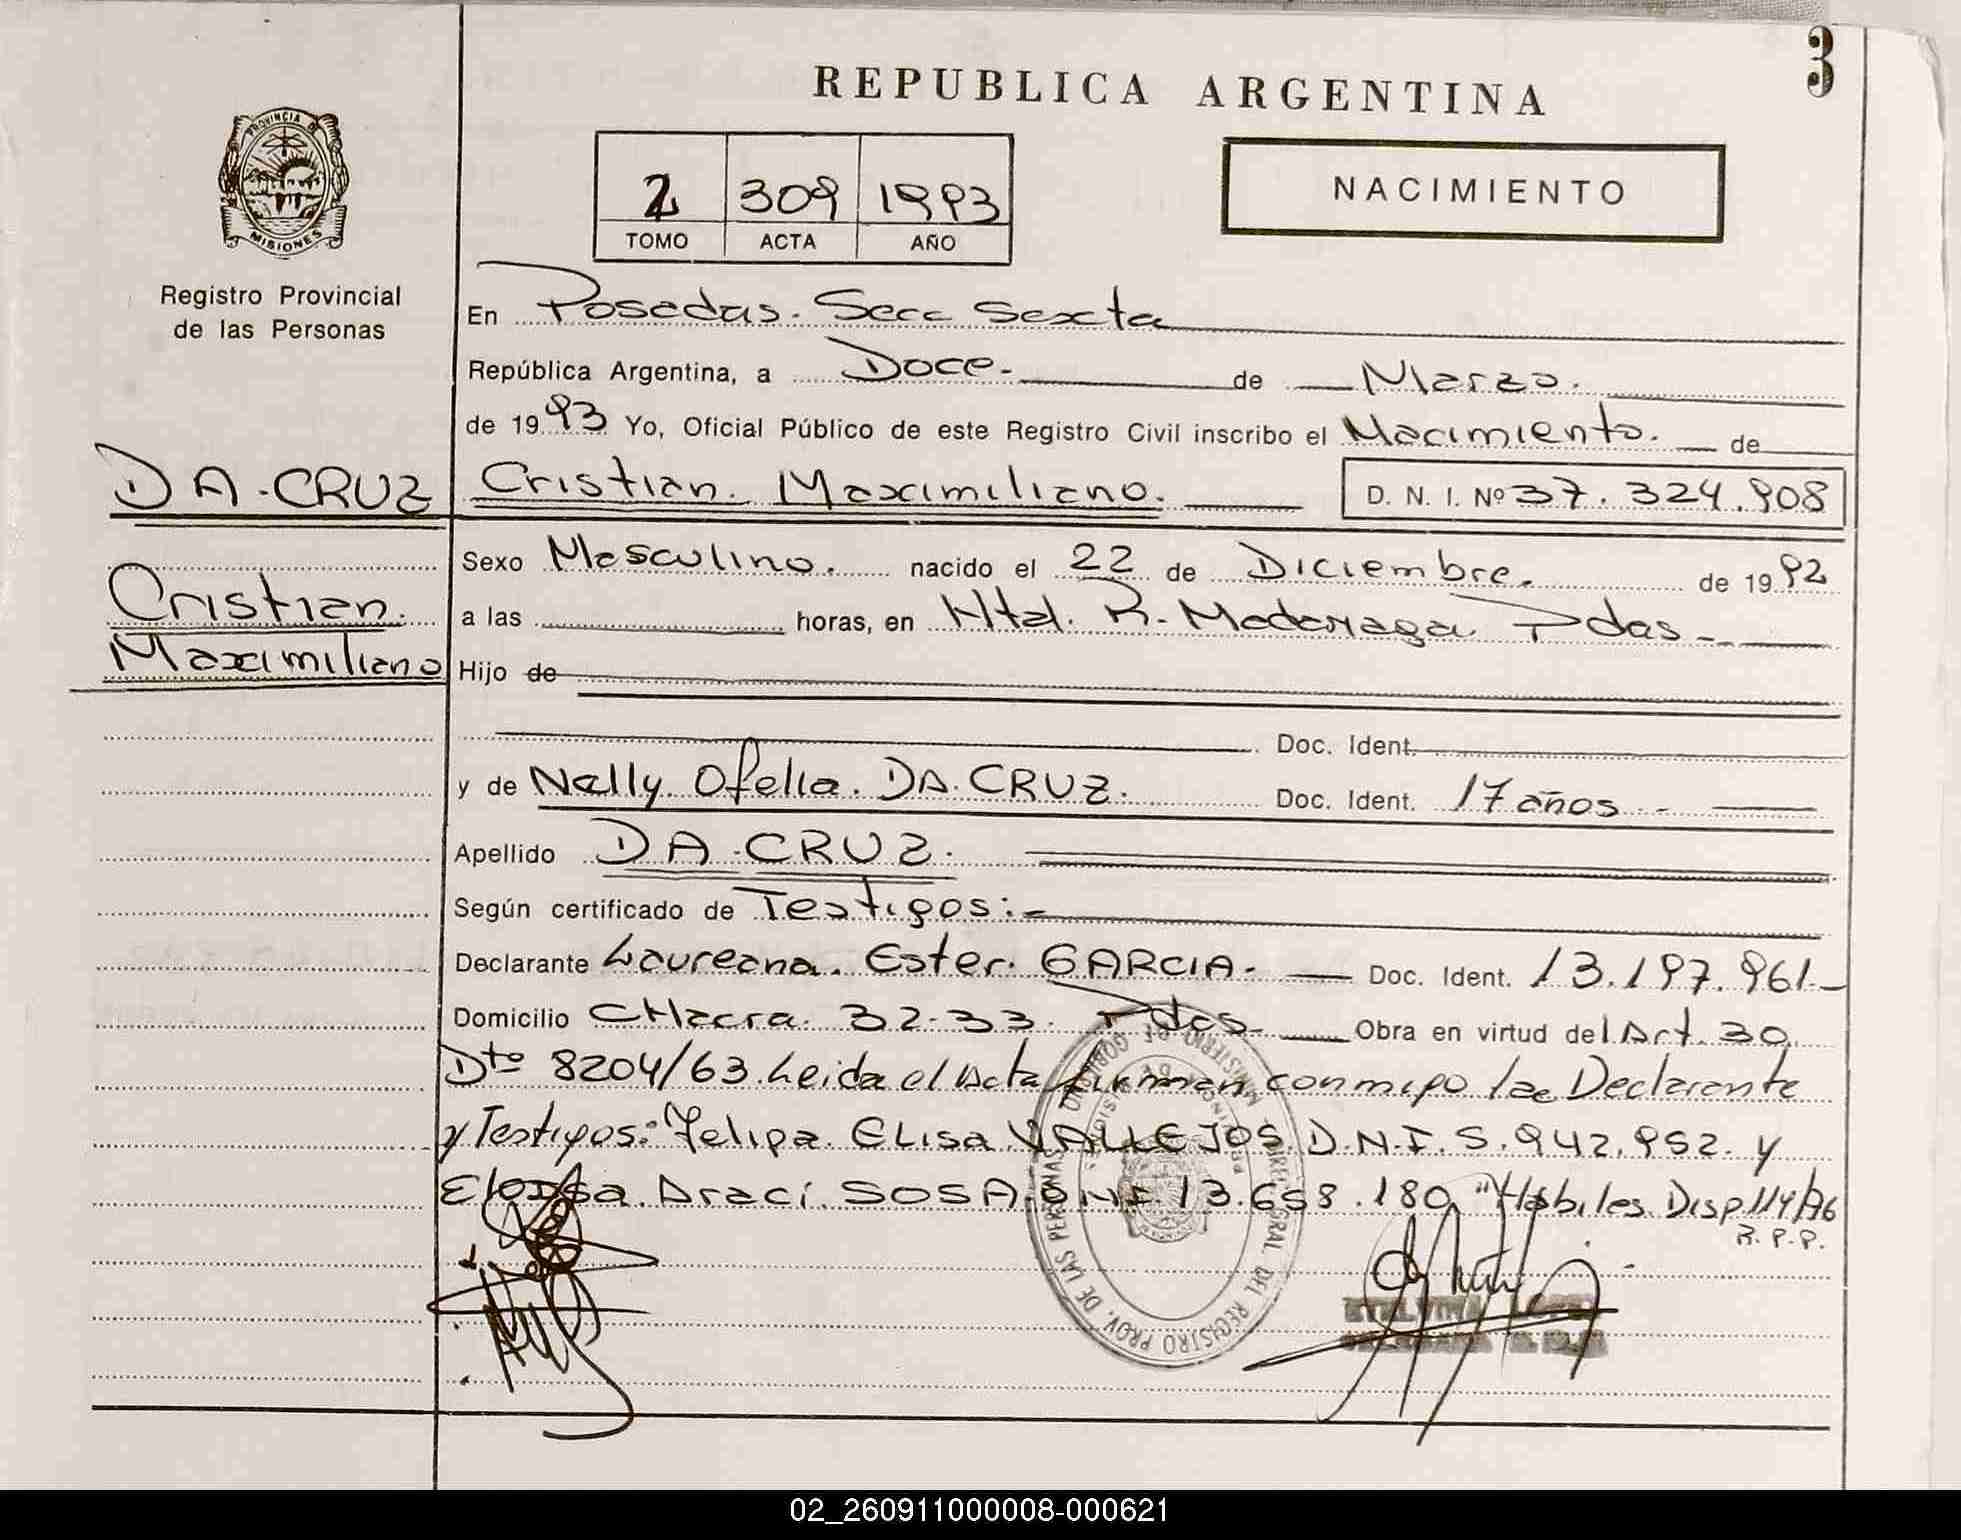 3
REPUBLICA ARGENTINA
PROVINCIA DE
MISIONES
Registro Provincial
de las Personas
2 309 1993
TOMO ACTA AÑO
NACIMIENTO
En Posadas. Secc Sexta
República Argentina, a Doce. de Marzo.
de 1993 Yo, Oficial Público de este Registro Civil inscribo el Nacimiento. de
DA. CRUZ Cristian. Maximiliano. D. N. I. Nº 37.324.908
Sexo Masculino. nacido el 22 de Diciembre. de 1992
Cristian.
a las horas, en Htal. R. Madariaga Pdas
Maximiliano
Hijo de
Doc. Ident.
y de Nelly Ofelia. DA. CRUZ. Doc. Ident. 17 años.-
Apellido DA. CRUZ.
Según certificado de Testigos:-
Declarante Laureana. Ester. GARCIA- Doc. Ident. 13.197.961-
Domicilio CHacra. 32-33. Pdas- Obra en virtud del Art. 30
Dto 8204/63. Leida el Acta firman conmigo la Declarante
y Testigos: Felipa. Elisa VALLEJOS. D.N.I. 5.942.952. y
Eloisa. Araci. SOSA. DNI. 13.658.180 "Habiles. Disp. 114/86
R.P.P.
MINISTERIO DE GOBIERNO
DIREC. GRAL. DEL REGISTRO PROV. DE LAS PERSONAS
02_260911000008-000621